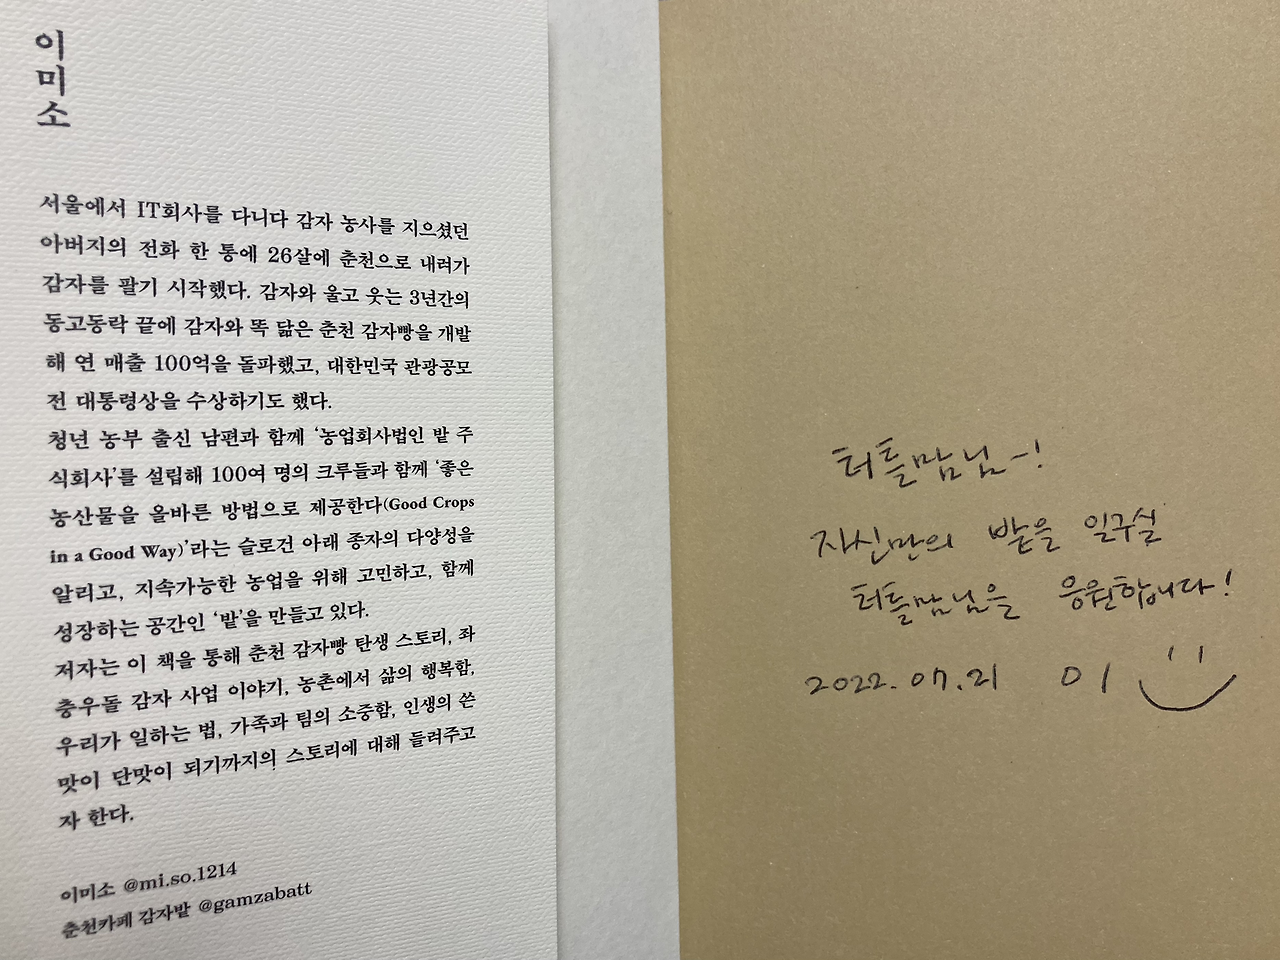 이미소
서울에서 IT회사를 다니다 감자 농사를 지으셨던
아버지의 전화 한 통에 26살에 춘천으로 내려가
감자를 팔기 시작했다. 감자와 울고 웃는 3년간의
동고동락 끝에 감자와 똑 닮은 춘천 감자빵을 개발
해 연 매출 100억을 돌파했고, 대한민국 관광공모
전 대통령상을 수상하기도 했다.
청년 농부 출신 남편과 함께 ‘농업회사법인 밭 주
식회사’를 설립해 100여 명의 크루들과 함께 ‘좋은
농산물을 올바른 방법으로 제공한다(Good Crops
in a Good Way)’라는 슬로건 아래 종자의 다양성을
알리고, 지속가능한 농업을 위해 고민하고, 함께
성장하는 공간인 ‘밭’을 만들고 있다.
저자는 이 책을 통해 춘천 감자빵 탄생 스토리, 좌
충우돌 감자 사업 이야기, 농촌에서 삶의 행복함,
우리가 일하는 법, 가족과 팀의 소중함, 인생의 쓴
맛이 단맛이 되기까지의 스토리에 대해 들려주고
자 한다.
이미소 @mi.so.1214
춘천카페 감자밭 @gamzabatt
터틀맘님~!
자신만의 밭을 일구실
터틀맘님을 응원합니다!
2022. 07. 21 이